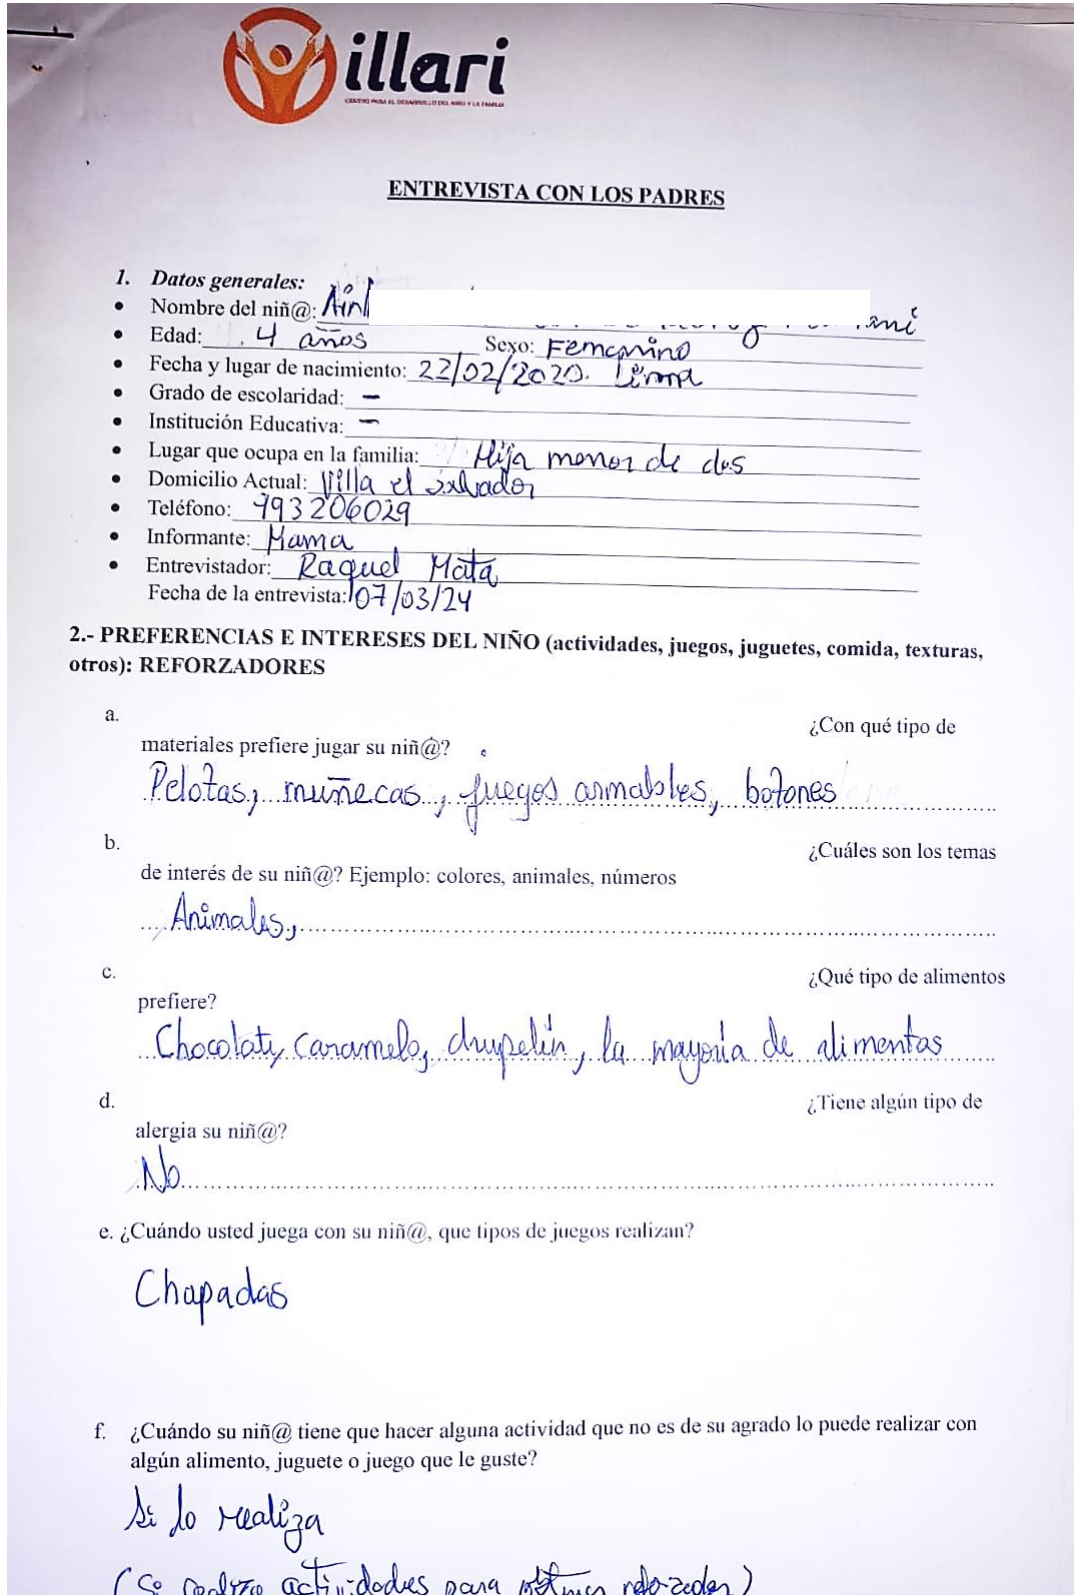 illari
CENTRO PARA EL DESARROLLO DEL NIÑO Y LA FAMILIA
ENTREVISTA CON LOS PADRES
1. Datos generales:
• Nombre del niñ@:
• Edad: 4 años Sexo: Femenino
• Fecha y lugar de nacimiento: 22/02/2020. Lima
• Grado de escolaridad: —
• Institución Educativa: —
• Lugar que ocupa en la familia: Hija menor de dos
• Domicilio Actual: Villa el salvador
• Teléfono: 993206029
• Informante: Mama
• Entrevistador: Raquel Mata
Fecha de la entrevista: 07/03/24
2.- PREFERENCIAS E INTERESES DEL NIÑO (actividades, juegos, juguetes, comida, texturas,
otros): REFORZADORES
a. ¿Con qué tipo de
materiales prefiere jugar su niñ@?
Pelotas, muñecas, juegos armables, botones
b. ¿Cuáles son los temas
de interés de su niñ@? Ejemplo: colores, animales, números
Animales,
c. ¿Qué tipo de alimentos
prefiere?
Chocolate, caramelo, la mayoría de alimentos
d. ¿Tiene algún tipo de
alergia su niñ@?
No
e. ¿Cuándo usted juega con su niñ@, que tipos de juegos realizan?
Chapadas
f. ¿Cuándo su niñ@ tiene que hacer alguna actividad que no es de su agrado lo puede realizar con
algún alimento, juguete o juego que le guste?
Si lo realiza
(Se realiza actividades para obtener reforzador)